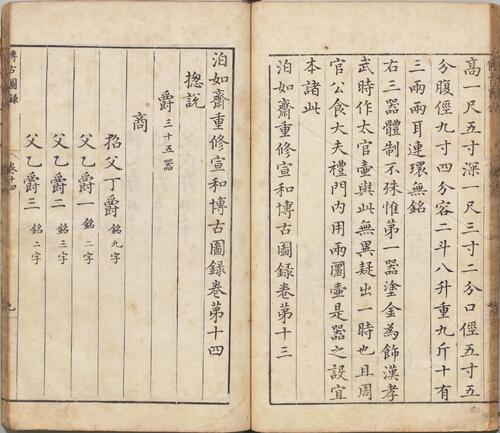 高一尺五寸深一尺三寸二分口徑五寸五
分腹徑九寸四分容二斗八升重九斤十有
三兩兩耳連環無銘
右三器體制不殊惟第一器塗金為飾漢孝
武時作太官壺與此無異疑出一時也且周
官公食大夫禮門內用兩圜壺是器之設宜
本諸此
泊如齋重修宣和博古圖錄卷第十三
泊如齋重修宣和博古圖錄卷第十四
揔說
爵三十五器
商
招父丁爵銘九字
父乙爵一銘二字
父乙爵二銘三字
父乙爵三銘二字
博古圖錄
卷十四
九